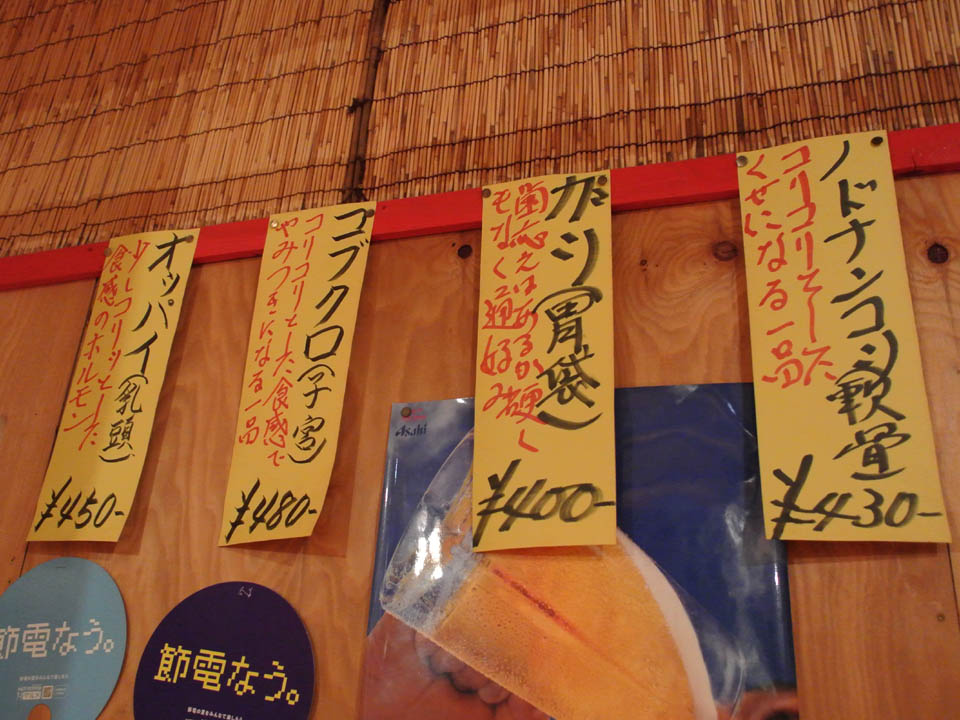 ノドナンコツ軟骨
コリコリそして
くせになる一品
¥430-
ガツ(胃袋)
歯応えはあるが硬く
もなく通好み
¥400-
コブクロ(子宮)
コリコリとした食感で
やみつきになる一品
¥480-
オッパイ(乳頭)
少しコリッとした
食感のホルモン
¥450-
Asahi
節電なう。
節電なう。